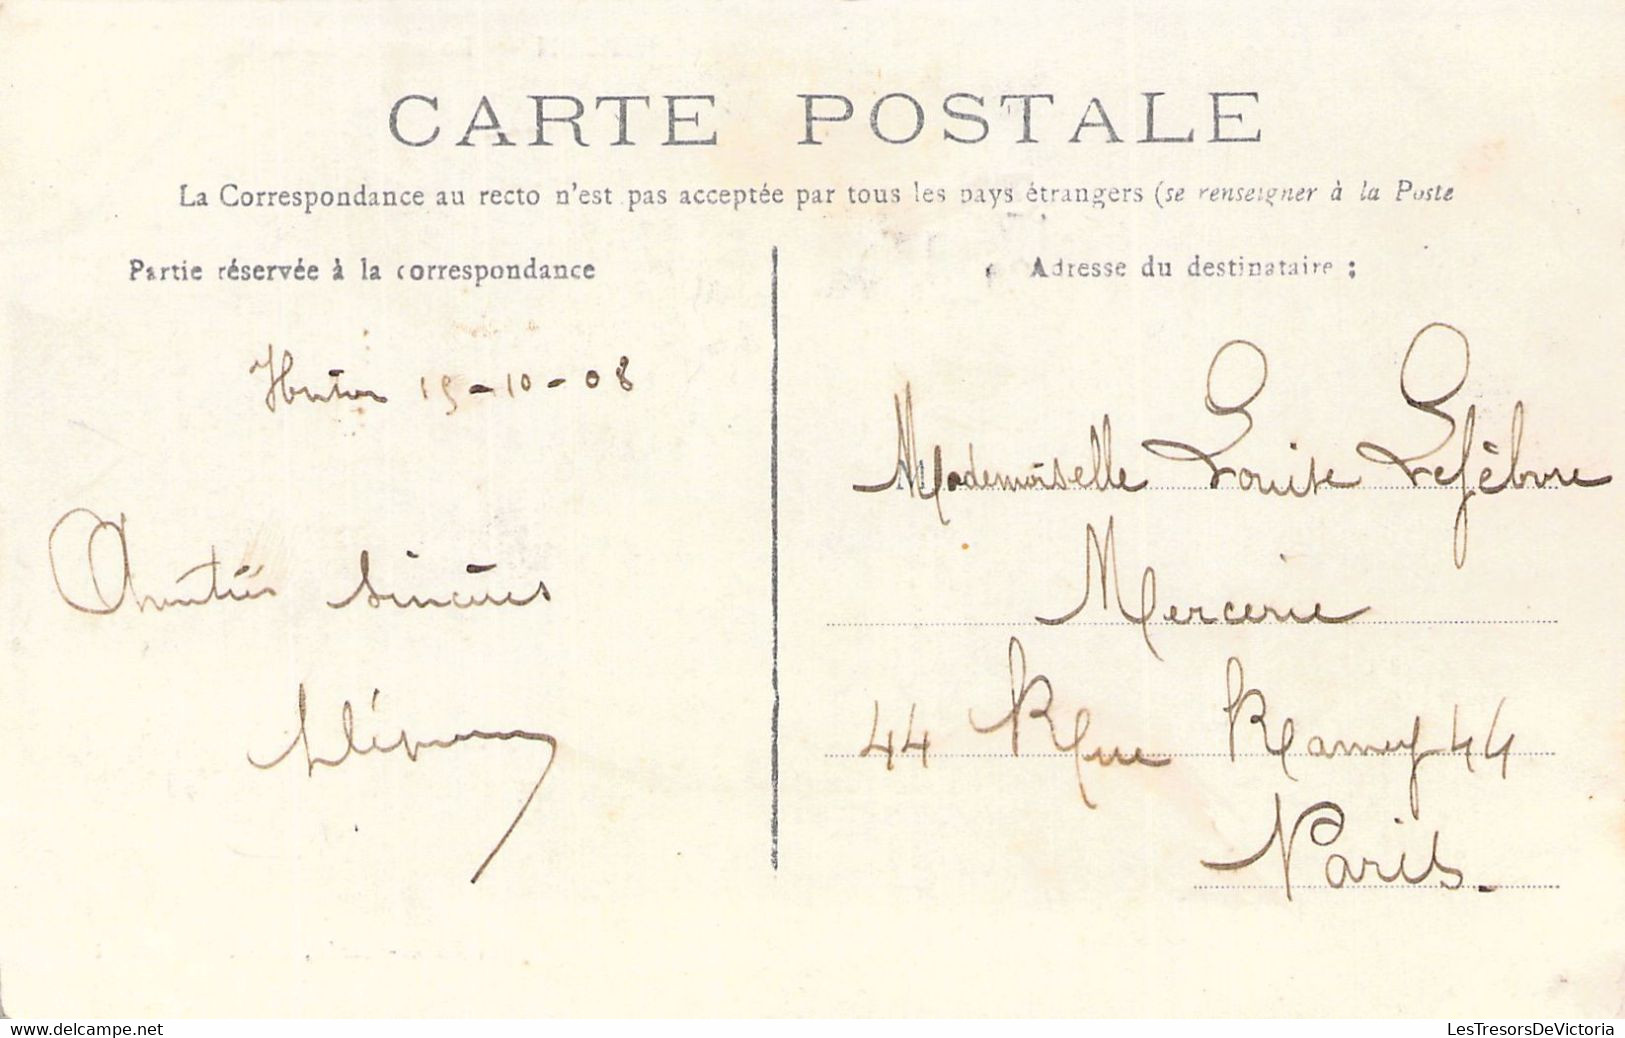 CARTE POSTALE
La Correspondance au recto n'est pas acceptée par tous les pays étrangers (se renseigner à la Poste
Partie réservée à la correspondance
Adresse du destinataire :
15-10-08
Amitiés sincères
Mademoiselle Louise Lefèbvre
Mercerie
44 Rue Ramey 44
Paris.
www.delcampe.net
LesTresorsDeVictoria